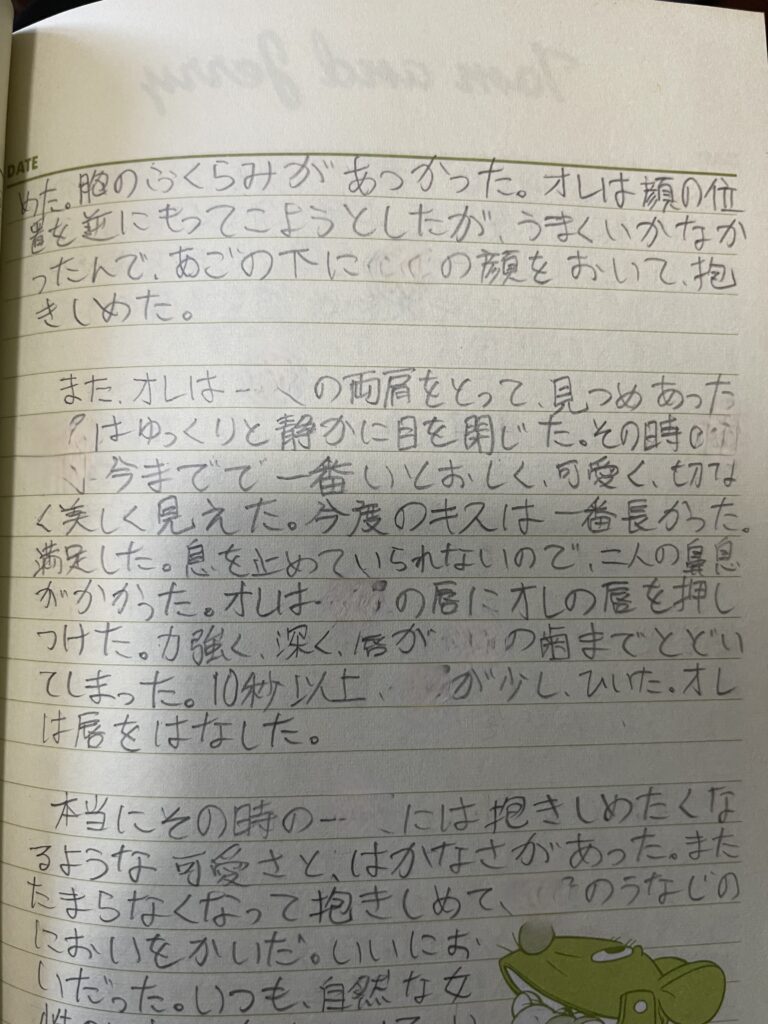 Tom and Jerry
DATE
めた。胸のふくらみがあつかった。オレは顔の位
置を逆にもってこようとしたが、うまくいかなか
ったんで、あごの下に の顔をおいて、抱
きしめた。
また、オレは の両肩をとって、見つめあった
はゆっくりと静かに目を閉じた。その時の
今までで一番いとおしく、可愛く、切な
く美しく見えた。今度のキスは一番長かった。
満足した。息を止めていられないので、二人の鼻息
がかかった。オレは の唇にオレの唇を押し
つけた。力強く、深く、唇が の歯までとどい
てしまった。10秒以上、 が少し、ひいた。オレ
は唇をはなした。
本当にその時の には抱きしめたくな
るような可愛さと、はかなさがあった。また
たまらなくなって抱きしめて、 のうなじの
においをかいだ。いいにお
いだった。いつも、自然な女